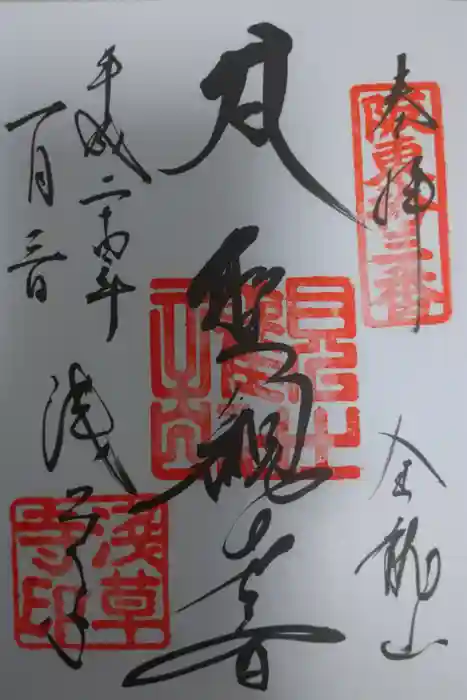 奉拝
坂東十三番
金龍山
聖観音
平成二十四年
一月三日
浅草寺
浅草寺印